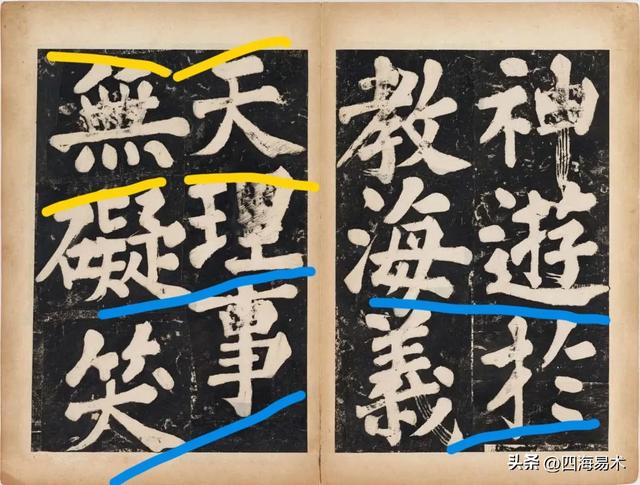 神遊於
教海義
天理事
無礙笑
头条 @四海易木